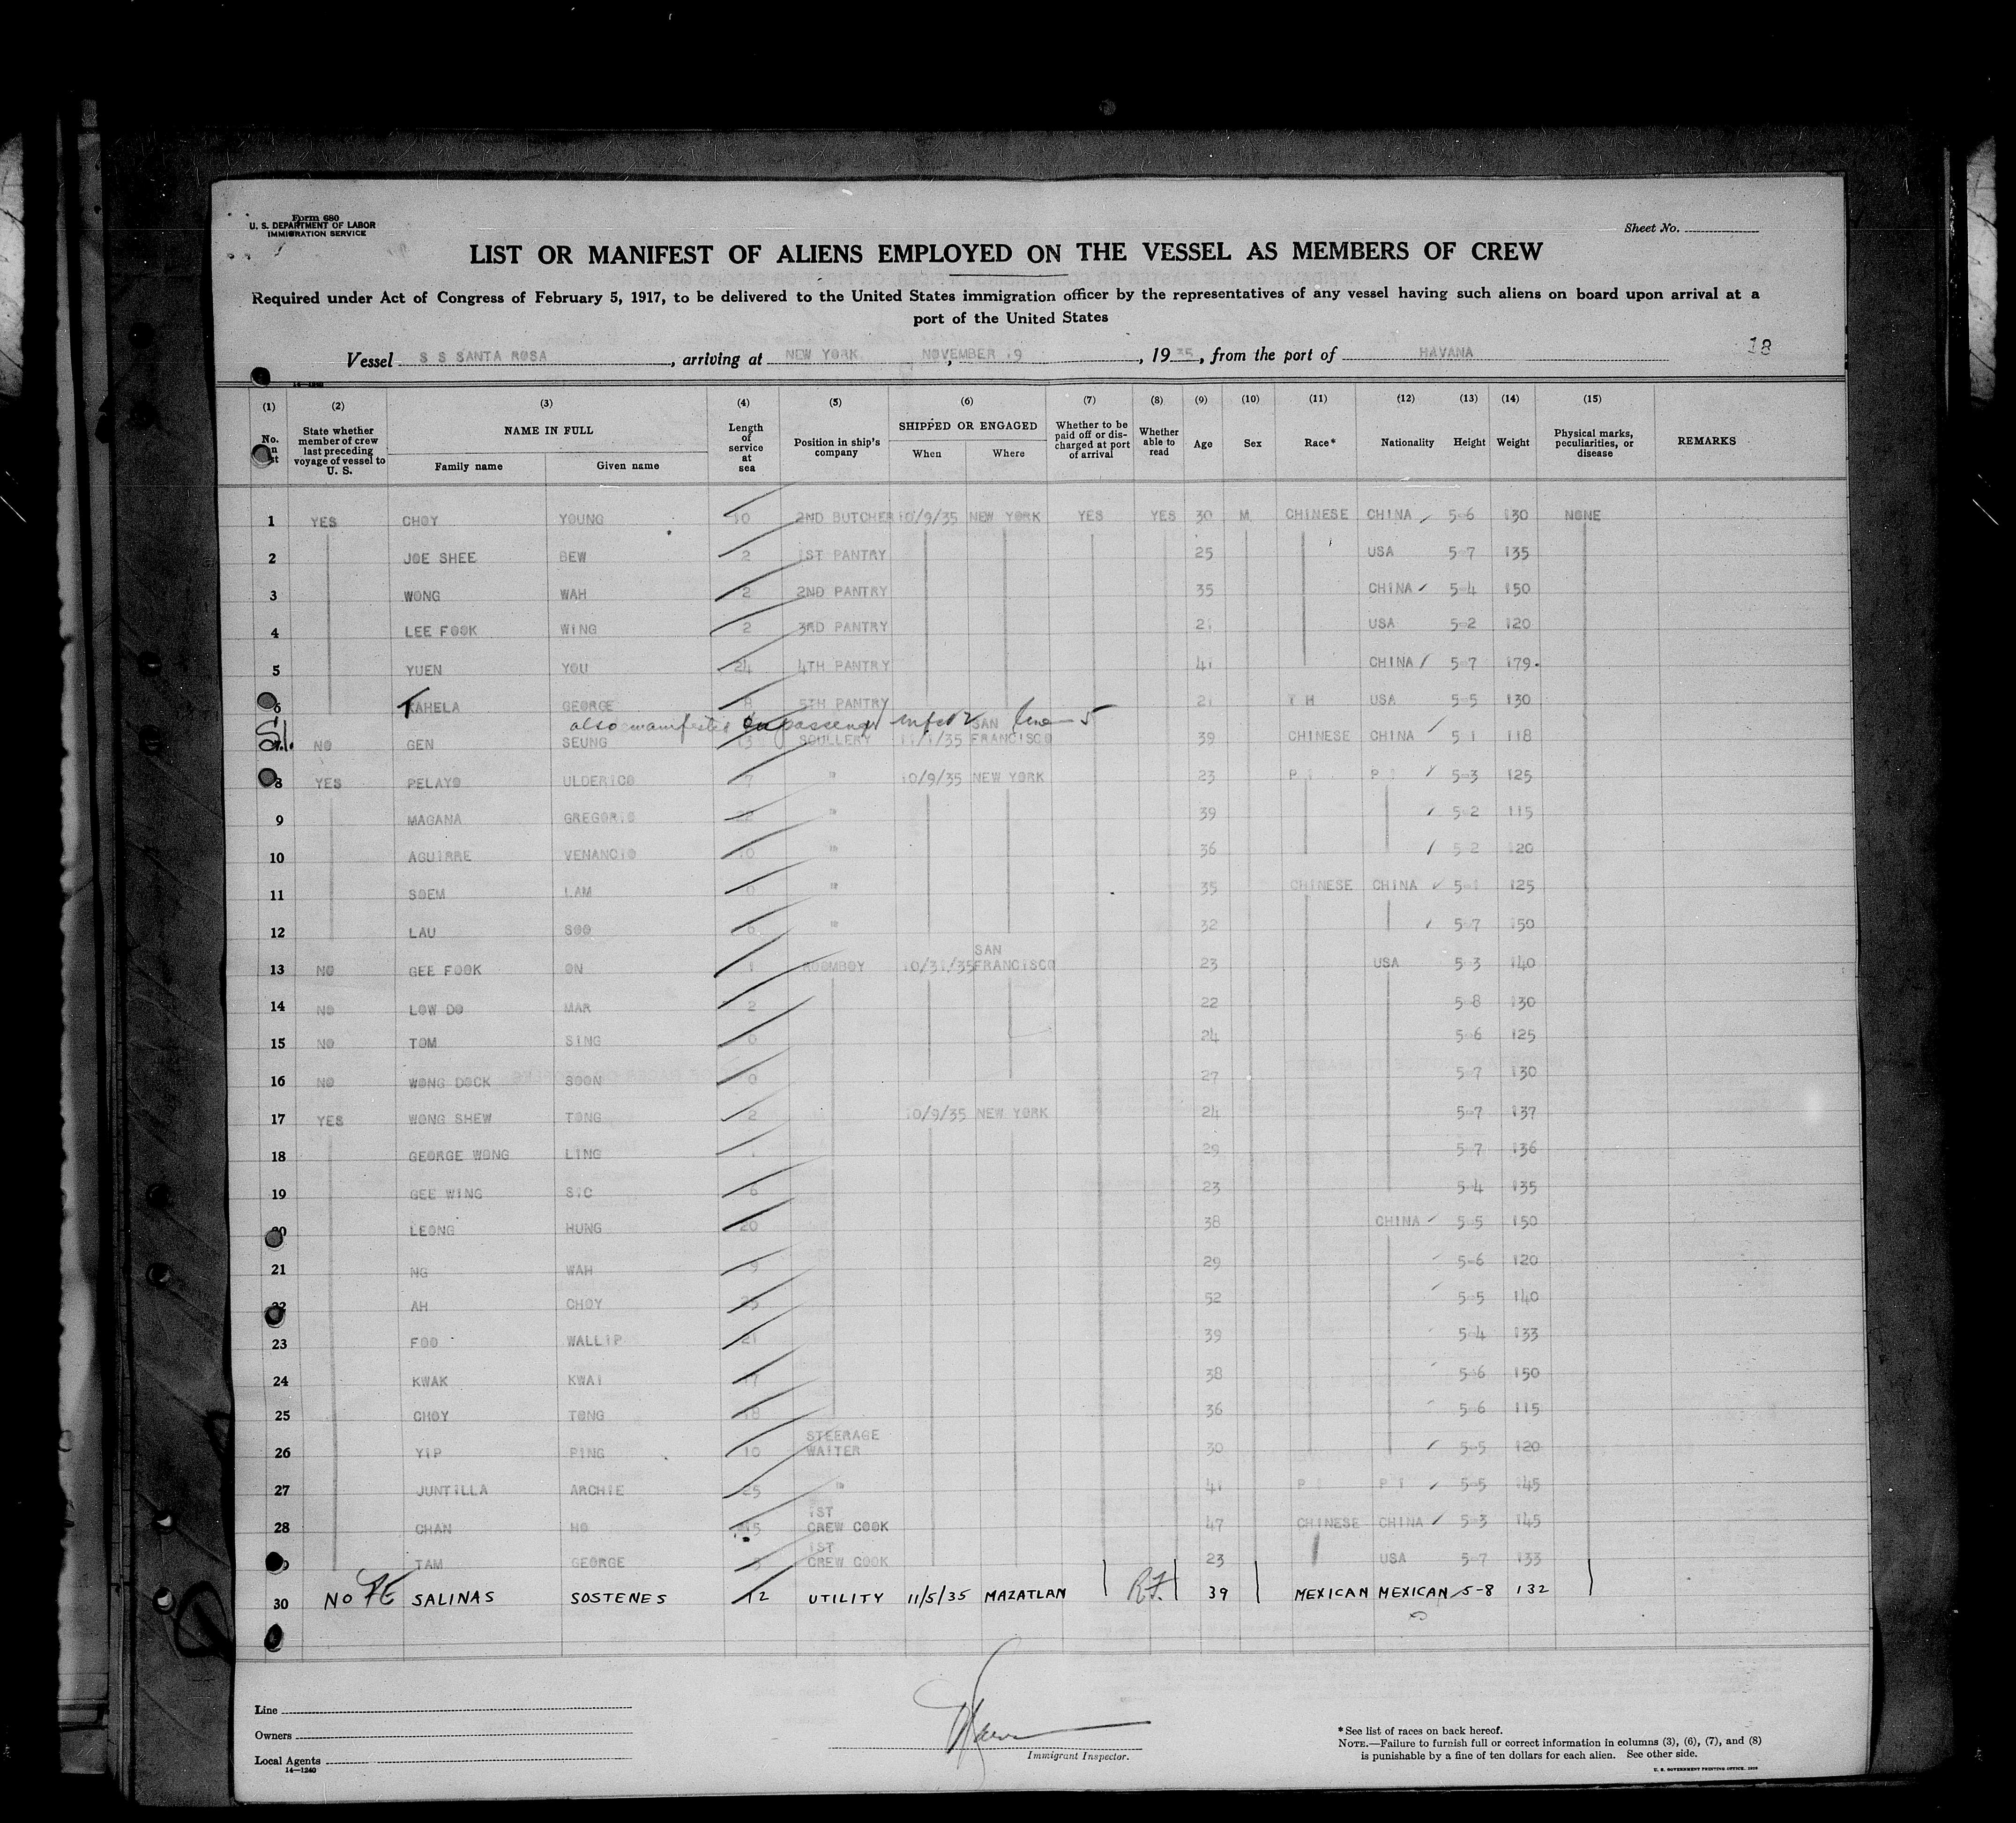 Form 680
U. S. DEPARTMENT OF LABOR
IMMIGRATION SERVICE
Sheet No.
LIST OR MANIFEST OF ALIENS EMPLOYED ON THE VESSEL AS MEMBERS OF CREW
Required under Act of Congress of February 5, 1917, to be delivered to the United States immigration officer by the representatives of any vessel having such aliens on board upon arrival at a
port of the United States
Vessel S S SANTA ROSA, arriving at NEW YORK, NOVEMBER 19, 1935, from the port of HAVANA 18
14-1240
(1) (2) (3) (4) (5) (6) (7) (8) (9) (10) (11) (12) (13) (14) (15)
No. State whether member of crew last preceding voyage of vessel to U. S. NAME IN FULL Family name Given name Length of service at sea Position in ship's company SHIPPED OR ENGAGED When Where Whether to be paid off or discharged at port of arrival Whether able to read Age Sex Race* Nationality Height Weight Physical marks, peculiarities, or disease REMARKS
1 YES CHOY YOUNG 10 2ND BUTCHER 10/9/35 NEW YORK YES YES 30 M CHINESE CHINA 5-6 130 NONE
2 JOE SHEE BEW 2 1ST PANTRY 25 USA 5-7 135
3 WONG WAH 2 2ND PANTRY 35 CHINA 5-4 150
4 LEE FOOK WING 2 3RD PANTRY 21 USA 5-2 120
5 YUEN YOU 24 4TH PANTRY 41 CHINA 5-7 179
6 KAHELA GEORGE 8 5TH PANTRY 21 T H USA 5-5 130
also manifested on passenger line 5
SI. NO GEN SEUNG 13 SCULLERY 11/1/35 SAN FRANCISCO 39 CHINESE CHINA 5 1 118
8 YES PELAYO ULDERICO 7 " 10/9/35 NEW YORK 23 P I P I 5-3 125
9 MAGANA GREGORIO 22 " 39 5-2 115
10 AGUIRRE VENANCIO 10 " 36 5-2 120
11 SOEM LAM " 35 CHINESE CHINA 5-1 125
12 LAU SOO 6 " 32 5-7 150
13 NO GEE FOOK ON 1 ROOMBOY 10/31/35 SAN FRANCISCO 23 USA 5-3 140
14 NO LOW DO MAR 2 22 5-8 130
15 NO TOM SING 0 24 5-6 125
16 NO WONG DOCK SOON 0 27 5-7 130
17 YES WONG SHEW TONG 2 10/9/35 NEW YORK 24 5-7 137
18 GEORGE WONG LING 1 29 5-7 136
19 GEE WING SIC 6 23 5-4 135
20 LEONG HUNG 20 38 CHINA 5-5 150
21 NG WAH 9 29 5-6 120
22 AH CHOY 52 5-5 140
23 FOO WALLIP 21 39 5-4 133
24 KWAK KWAI 38 5-6 150
25 CHOY TONG 18 36 5-6 115
26 YIP PING 10 STEERAGE WAITER 30 5-5 120
27 JUNTILLA ARCHIE 25 " 41 P I P I 5-5 145
28 CHAN HO 15 1ST CREW COOK 47 CHINESE CHINA 5-3 145
TAM GEORGE 1ST CREW COOK 23 USA 5-7 133
30 NO PE SALINAS SOSTENES 12 UTILITY 11/5/35 MAZATLAN 39 MEXICAN MEXICAN 5-8 132
Line
Owners
Local Agents
14—1240
Immigrant Inspector.
*See list of races on back hereof.
NOTE.—Failure to furnish full or correct information in columns (3), (6), (7), and (8)
is punishable by a fine of ten dollars for each alien. See other side.
U. S. GOVERNMENT PRINTING OFFICE